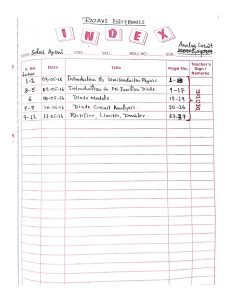 RAJAVE ELECTRONICS
INDEX
Analog Circuit
NAME: STD.: SEC.: ROLL NO.: SUB.:
S. No. Date Title Page No. Teacher's Sign / Remarks
1-2 09-05-16 Introduction to Semiconductor Physics 1-8
3-5 09-05-16 Introduction to PN Junction Diode 9-17
6 10-05-16 Diode Models. 18-19
7-8 10-05-16 Diode Circuit Analysis. 20-26
9-12 11-05-16 Rectifier, Limiter, Doubler. 27-37